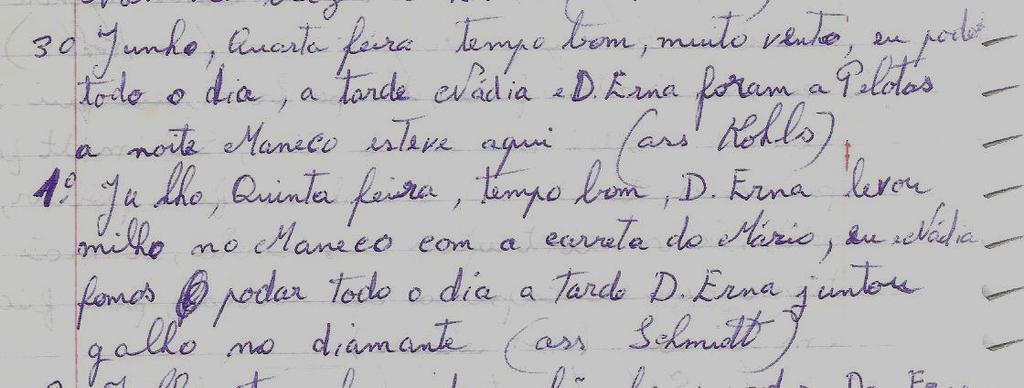 30 Junho, Quarta feira tempo bom, muito vento, eu podei
todo o dia, a tarde Nádia e D. Erna foram a Pelotas
a noite Maneco esteve aqui (ass Kohls)
1º Julho, Quinta feira, tempo bom, D. Erna levou
milho no Maneco com a carreta do Mário, eu e Nádia
fomos podar todo o dia a tarde D. Erna juntou
galho no diamante (ass Schmidt)